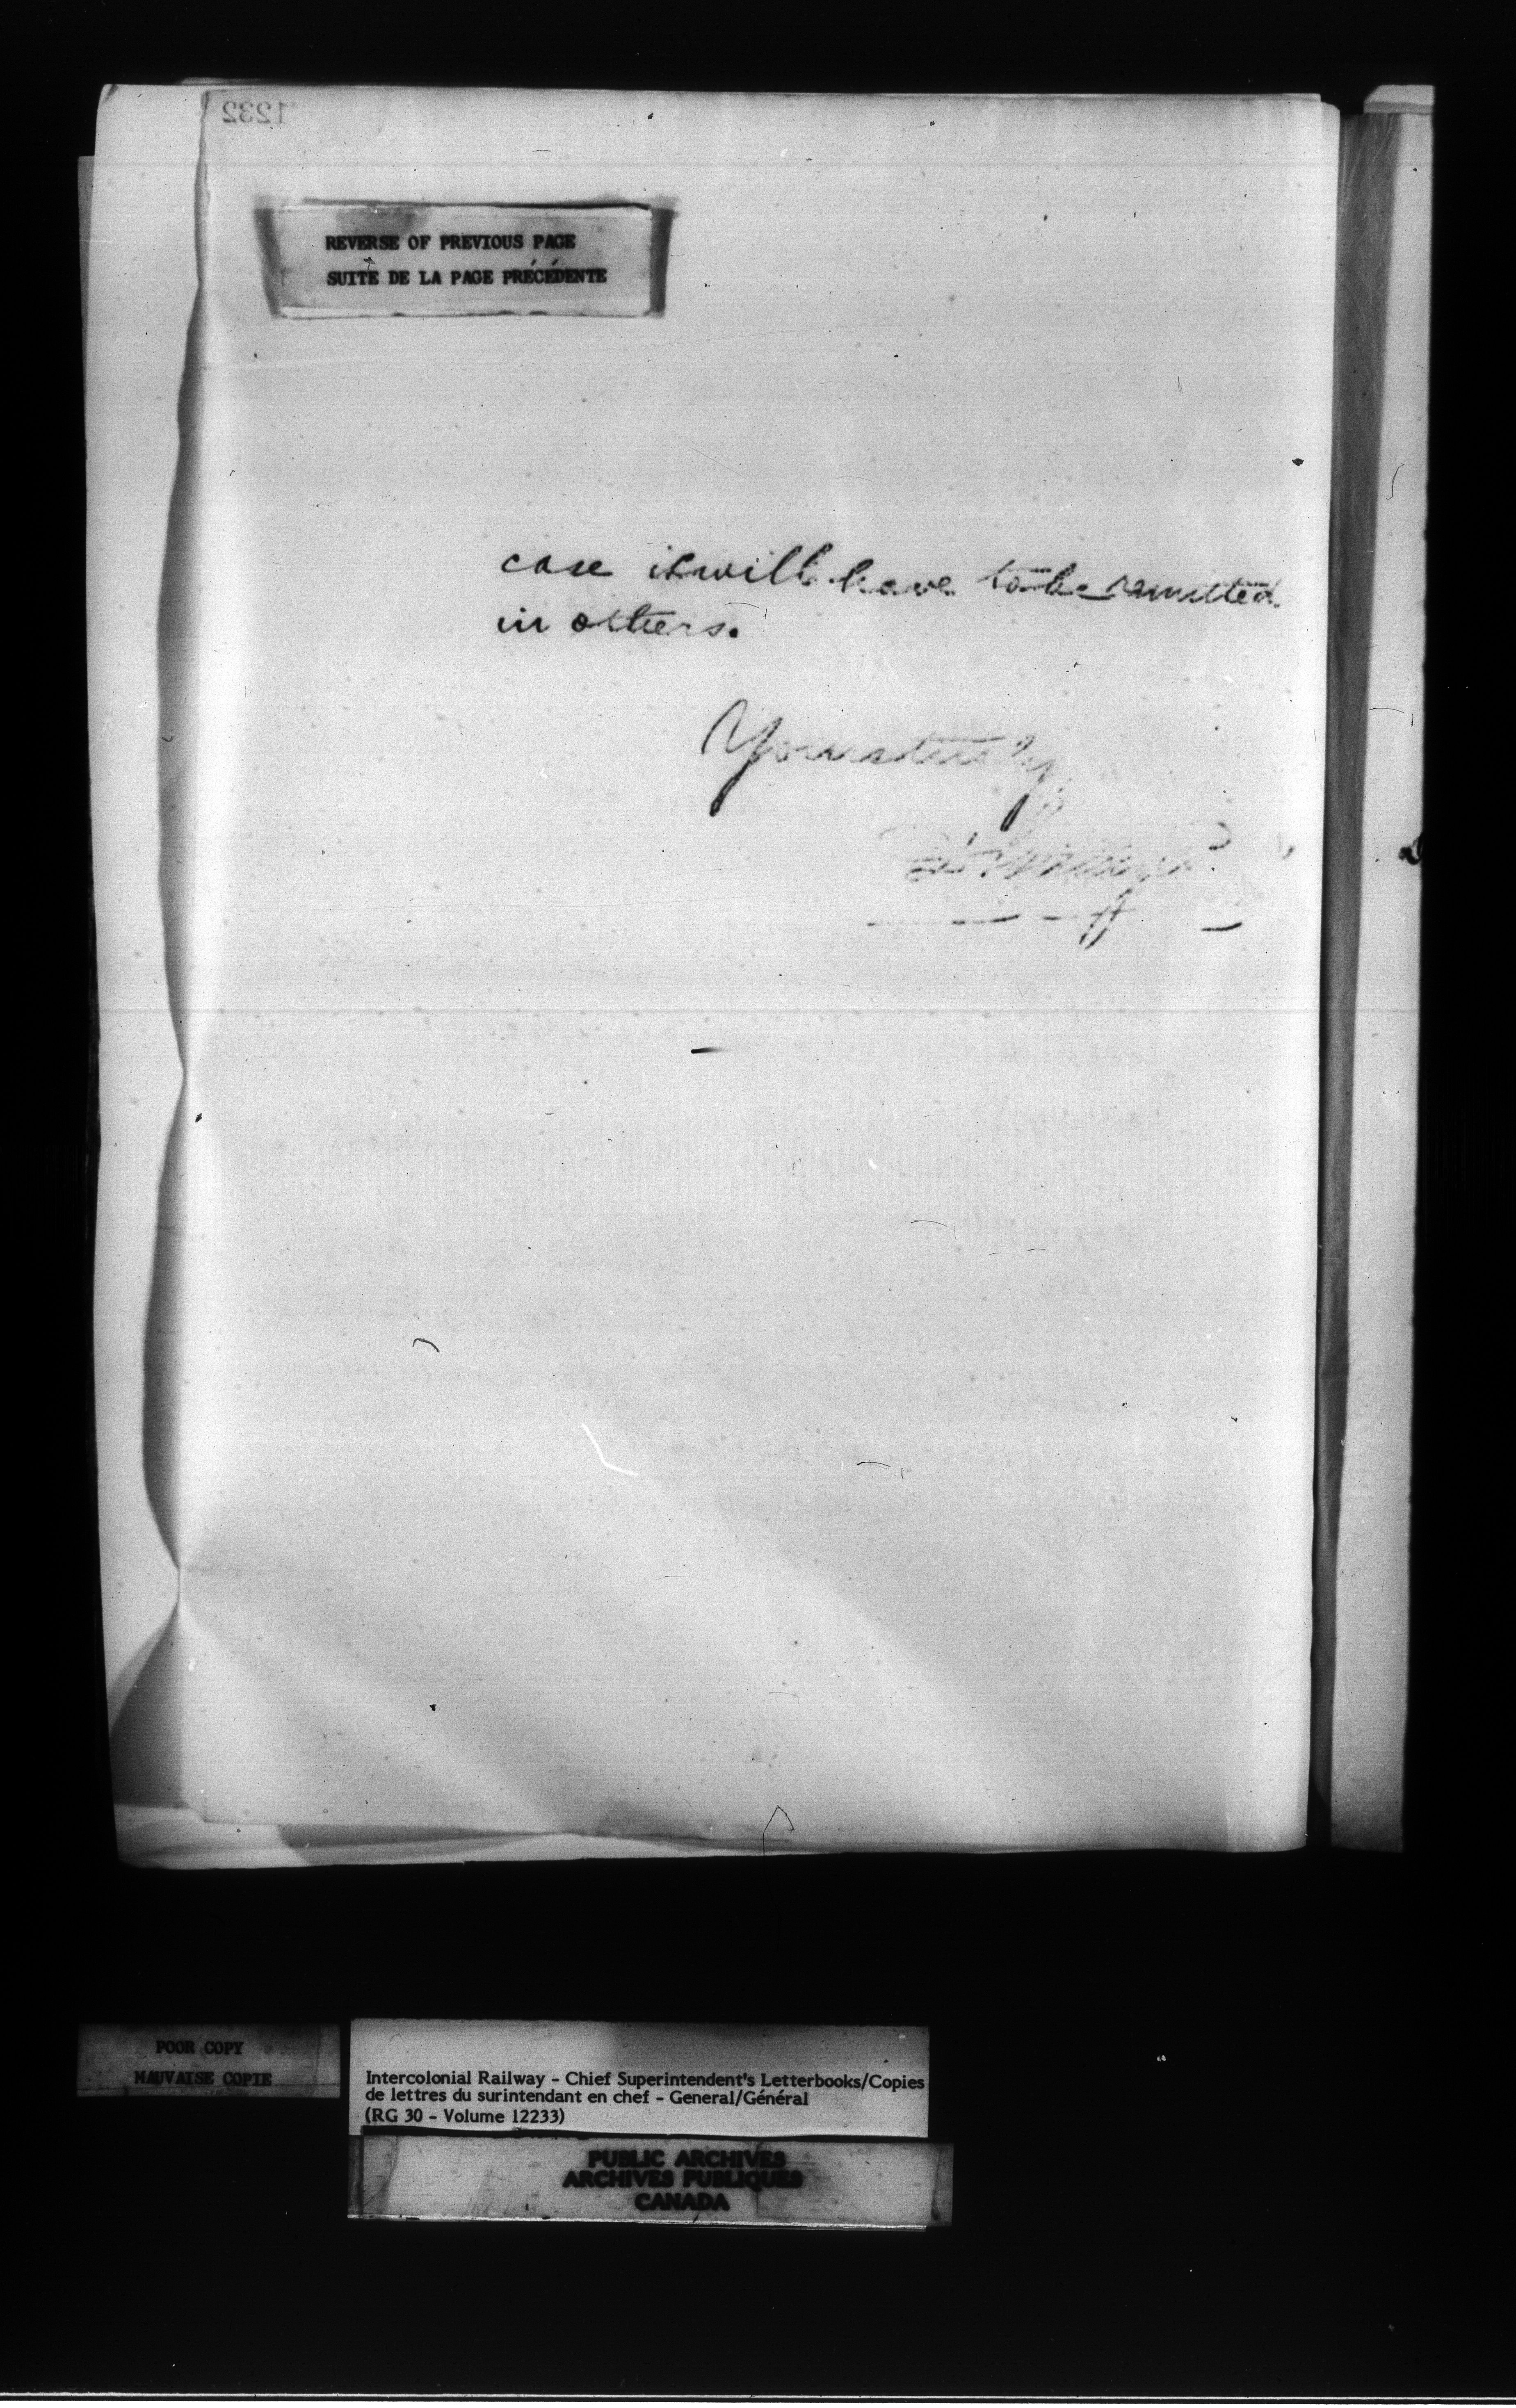 1232
REVERSE OF PREVIOUS PAGE
SUITE DE LA PAGE PRÉCÉDENTE
case it will have to be remitted
in others.
Yours truly
POOR COPY
MAUVAISE COPIE
Intercolonial Railway - Chief Superintendent's Letterbooks/Copies
de lettres du surintendant en chef - General/Général
(RG 30 - Volume 12233)
PUBLIC ARCHIVES
ARCHIVES PUBLIQUES
CANADA